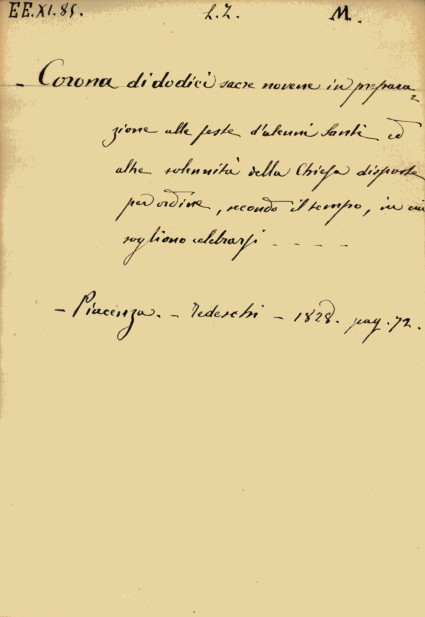 EE.XI.85. L.Z. M.
- Corona di dodici sacre novene in prepara=
zione alle feste d'alcuni Santi ed
altre solennità della Chiesa disposte
per ordine, secondo il tempo, in cui
sogliono celebrarsi - - - -
- Piacenza. - Tedeschi - 1828. pag. 72.